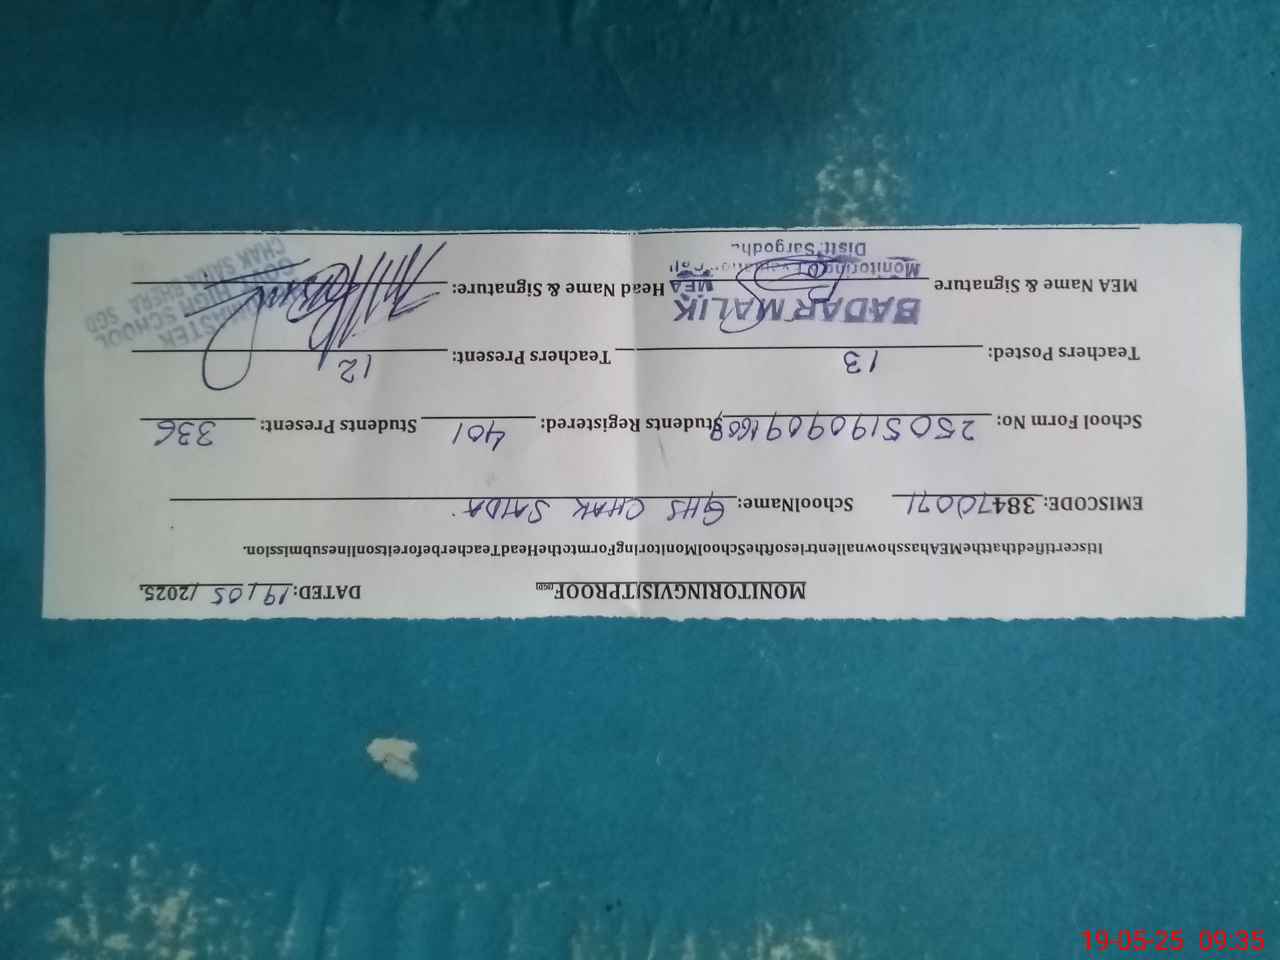 MONITORINGVISITPROOF(SGD) DATED: 19/05/2025.
ItiscertifiedthattheMEAhasshownallentriesoftheSchoolMonitoringFormtotheHeadTeacherbeforeitsonlinesubmission.
EMISCODE: 38470071 SchoolName: GHS CHAK SAIDA.
School Form No: Students Registered: 401 Students Present: 336
Teachers Posted: 13 Teachers Present: 12
BADAR MALIK
MEA
MEA Name & Signature Head Name & Signature:
Monitoring & Evaluation
Distt. Sargodha
SCHOOL
CHAK SAIDA
BHERA
SGD
19-05-25 09:35